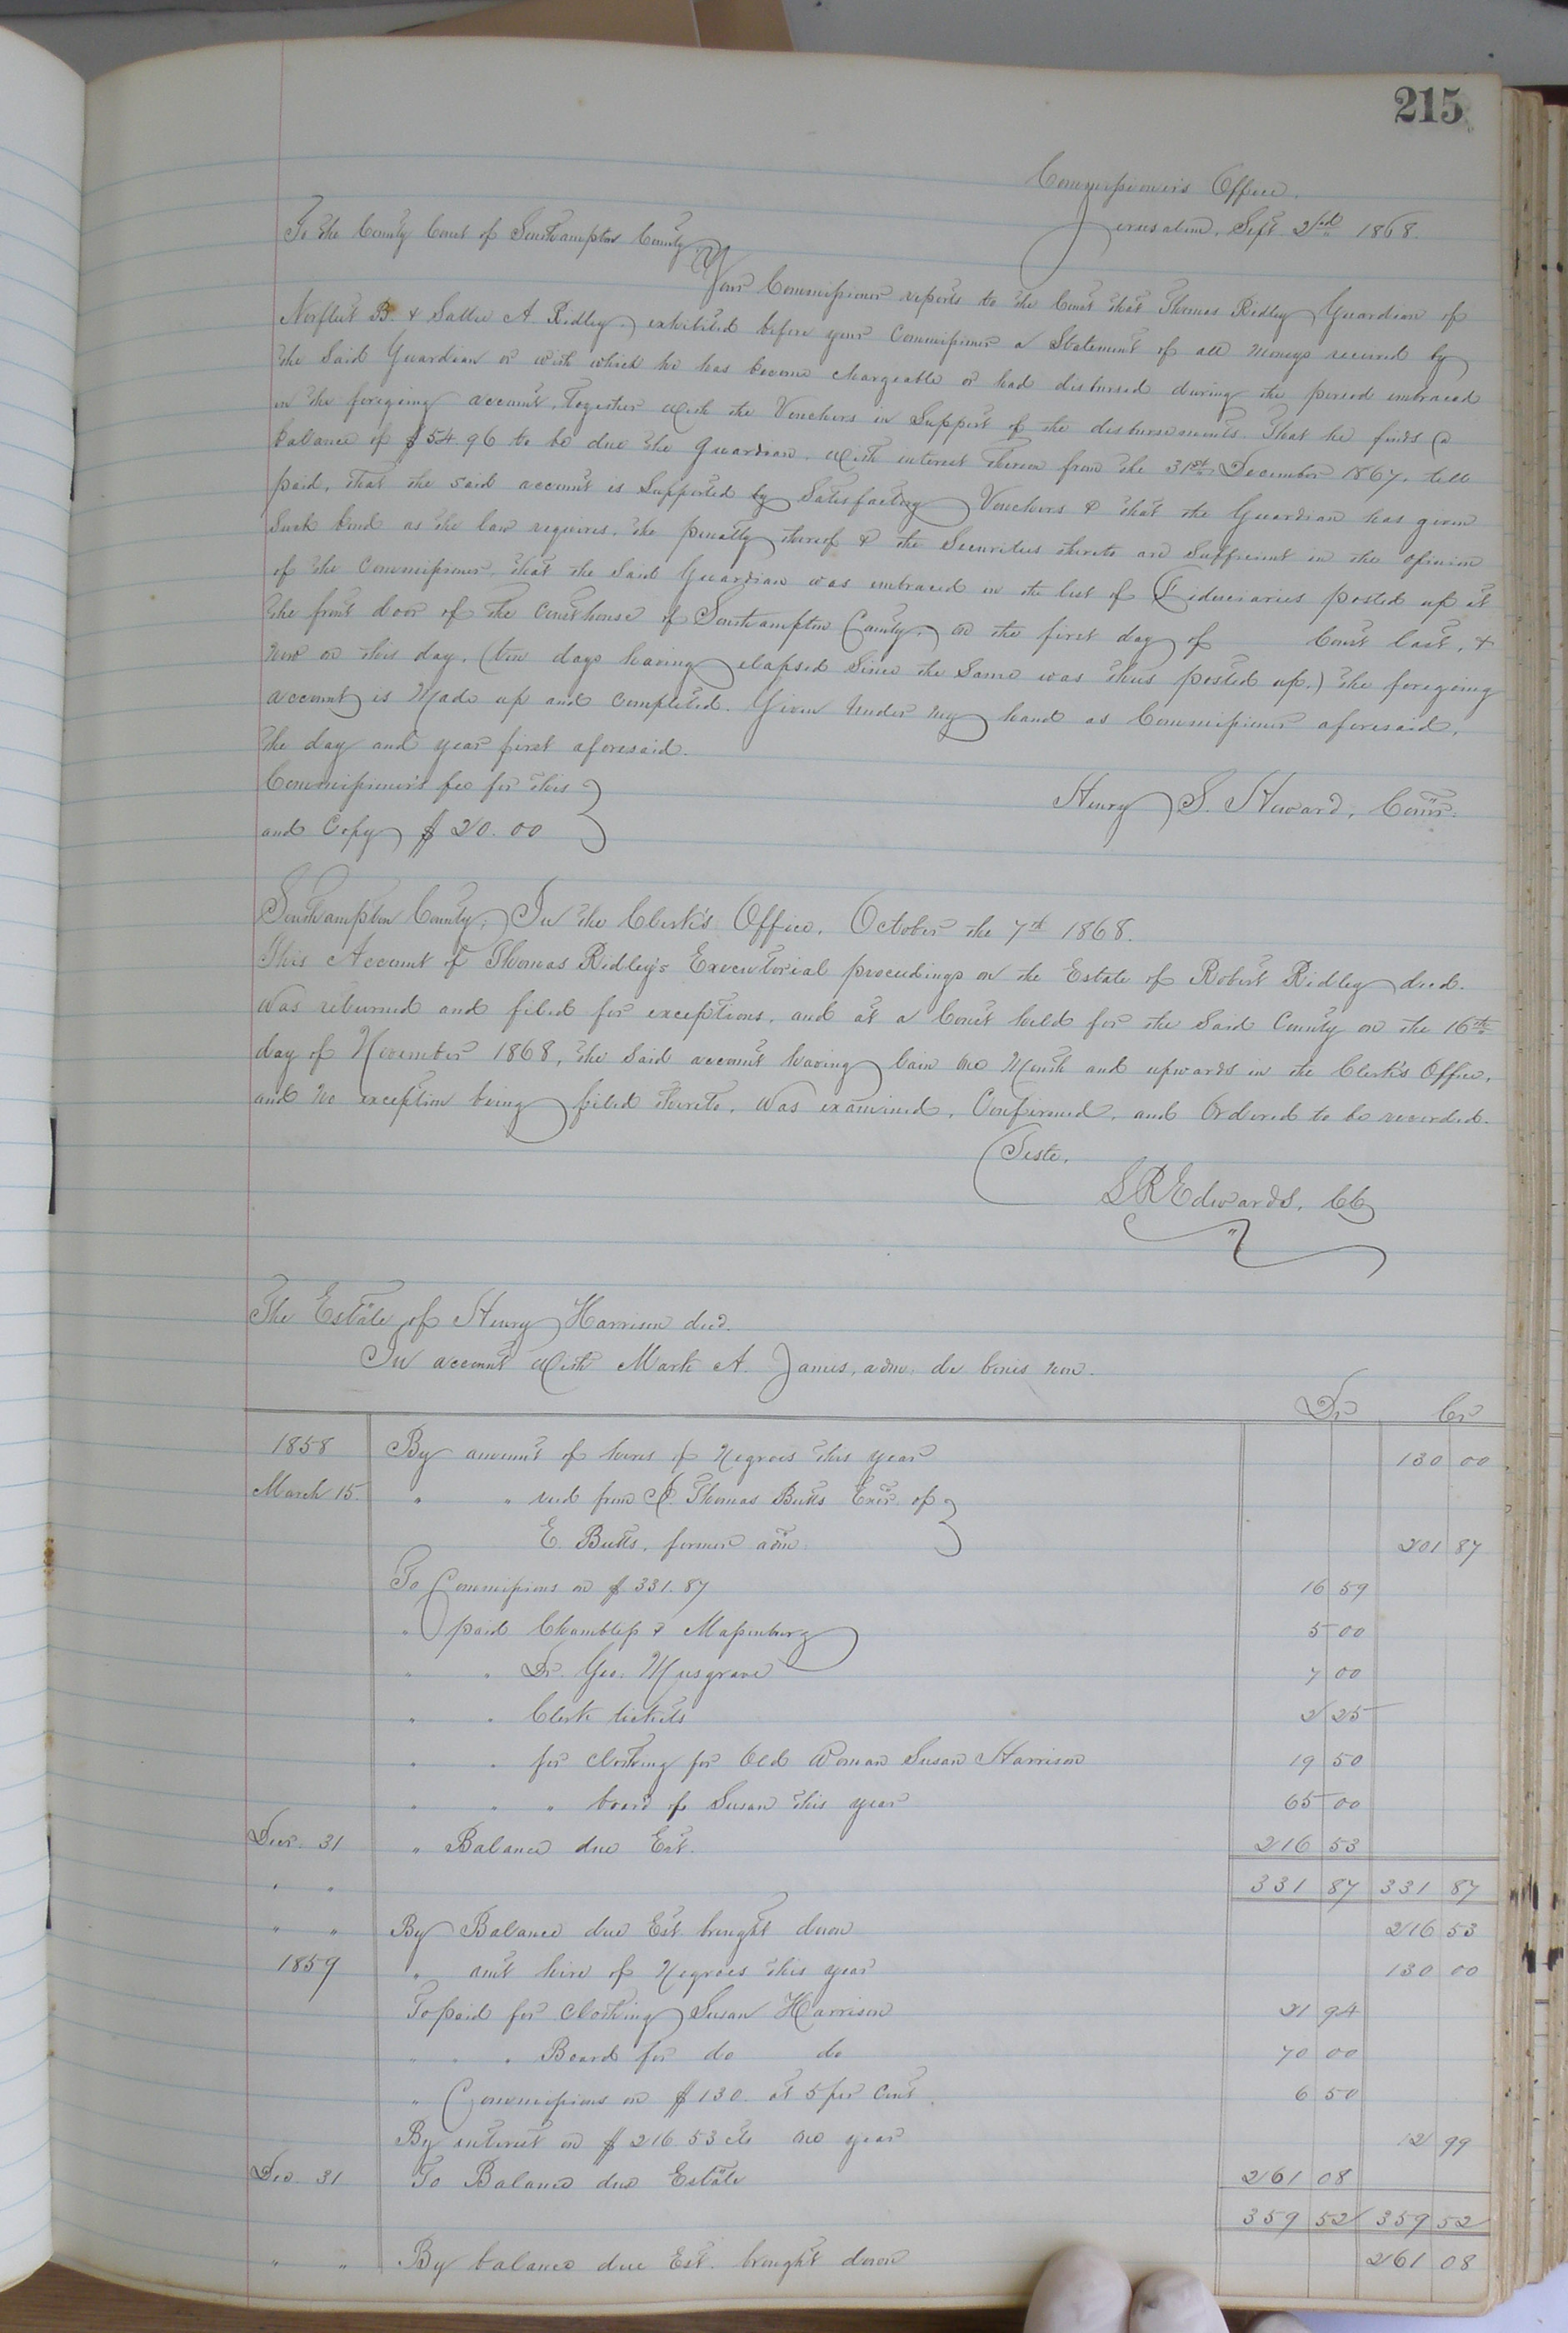 215
Commissioner's Office,
Jerusalem, Sept. 2nd 1868.
To the County Court of Southampton County,
Your Commissioner reports to the Court that Thomas Ridley, Guardian of
Norfleet B. & Sallie A. Ridley, exhibited before your Commissioner a Statement of all moneys received by
the Said Guardian or with which he has become chargeable or had disbursed during the period embraced
in the foregoing account, Together with the Vouchers in Support of the disbursements. That he finds a
balance of $54.96 to be due the Guardian, with interest thereon from the 31st December 1867, till
paid, that the said account is Supported by Satisfactory Vouchers & that the Guardian has given
Such bond as the law requires, the penalty thereof & the Securities thereto are Sufficient in the opinion
of the Commissioner, that the Said Guardian was embraced in the list of Fiduciaries posted up at
the front door of the Courthouse of Southampton County, on the first day of Court last, &
now on this day, (ten days having elapsed Since the Same was thus posted up.) the foregoing
account is Made up and completed. Given Under my hand as Commissioner aforesaid,
the day and year first aforesaid.
Commissioner's fee for this
and Copy $20.00
Henry S. Howard, Comr.
Southampton County, In the Clerk's Office, October the 7th 1868.
This Account of Thomas Ridley's Executorial proceedings on the Estate of Robert Ridley decd.
Was returned and filed for exceptions, and at a Court held for the Said County on the 16th
day of November 1868, the Said account having lain one Month and upwards in the Clerk's Office,
and no exception being filed thereto, Was examined, Confirmed, and Ordered to be recorded.
Teste,
L R Edwards, CC
The Estate of Henry Harrison decd.
In account With Mark A. James, adm. de bonis non.
Dr Cr
1858 By amount of hires of Negroes this year 130 00
March 15. " " recd from Thomas Butts Exor. of
E. Butts, former adm. 201 87
To Commissions on $331.87 16 59
" paid Chambliss & Massenburg 5 00
" " Dr. Geo. Musgrave 7 00
" " Clerk tickets 2 25
" " for Clothing for Old Woman Susan Harrison 19 50
" " " board of Susan this year 65 00
Decr. 31 " Balance due Est. 216 53
" " 331 87 331 87
" " By Balance due Est. brought down 216 53
1859 " amt hire of Negroes this year 130 00
To paid for Clothing Susan Harrison 21 94
" " " Board for do do 70 00
" Commissions on $130. at 5 per Cent. 6 50
By interest on $216.53 cts one year 12 99
Dec. 31 To Balance due Estate 261 08
359 52 359 52
" " By balance due Est. brought down 261 08